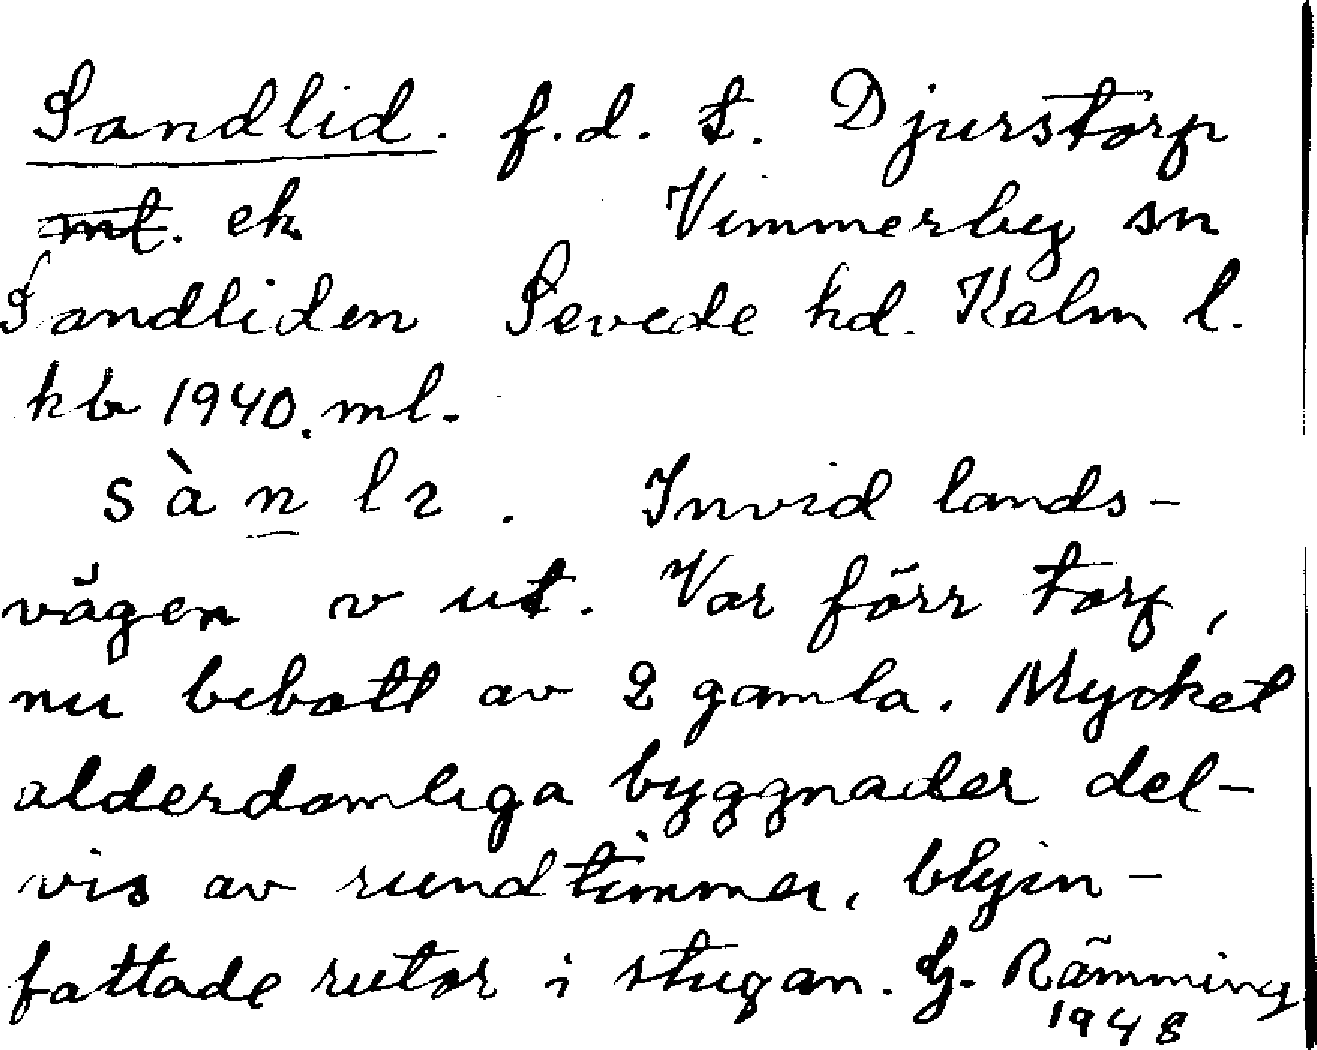 Sandlid. f.d. t. Djurstorp
mt. ek. Vimmerby sn
Sandliden Sevede hd. Kalm l.
kb 1940. ml.
sànlɩ. Invid lands-
vägen v ut. Var förr torp,
nu bebott av 2 gamla. Mycket
alderdomliga byggnader del-
vis av rundtimmer, blyin-
fattade rutor i stugan. G. Rämming
1948